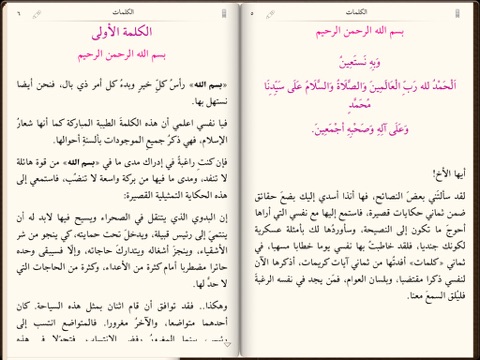 الكلمات
٥
بسم الله الرحمن الرحيم
وَبِهِ نَسْتَعِينُ
اَلْحَمْدُ لله رَبِّ الْعَالَمِينَ وَالصَّلاَةُ وَالسَّلاَمُ عَلَى سَيِّدِنَا
مُحَمَّدٍ
وَعَلَى آلِهِ وَصَحْبِهِ أَجْمَعِينَ.
أيها الأخ!
لقد سألتَني بعضَ النصائح، فها أنذا أسدي إليك بضعَ حقائق
ضمن ثماني حكايات قصيرة، فاستمع إليها مع نفسي التي أراها
أحوجَ ما تكون إلى النصيحة. وسأوردُها لك بأمثلة عسكرية
لكونك جنديا، فلقد خاطبتُ بها نفسي يوما خطابا مسهبا، في
ثماني «كلمات» أفدتُها من ثماني آيات كريمات، أذكرها الآن
لنفسي ذكرا مقتضبا، وبلسان العوام، فمَن يجد في نفسه الرغبةَ
فليُلق السمعَ معنا.
الكلمات
٦
الكلمة الأولى
بسم الله الرحمن الرحيم
«بسم الله» رأسُ كلِّ خيرٍ وبدءُ كل أمر ذي بال، فنحن أيضا
نستهل بها.
فيا نفسي اعلمي أن هذه الكلمةَ الطيبة المباركة كما أنها شعارُ
الإسلام، فهي ذكرُ جميعِ الموجودات بألسنة أحوالها.
فإن كنتِ راغبةً في إدراك مدى ما في «بسم الله» من قوة هائلة
لا تنفد، ومدى ما فيها من بركة واسعة لا تنضُب، فاستمعي إلى
هذه الحكاية التمثيلية القصيرة:
إن البدوي الذي يتنقل في الصحراء ويسيح فيها لابد له أن
ينتميَ إلى رئيس قبيلة، ويدخلَ تحت حمايته، كي ينجو من شر
الأشقياء، وينجزَ أشغاله ويتداركَ حاجاته، وإلّا فسيبقى وحده
حائرا مضطربا أمام كثرة من الأعداء، وكثرة من الحاجات التي
لا حدَّ لها.
وهكذا.. فقد توافق أن قام اثنان بمثل هذه السياحة. كان
أحدهما متواضعا، والآخرُ مغرورا. فالمتواضع انتسب إلى
رئيس، بينما المغرور رفض الانتساب. فتجولا في هذه